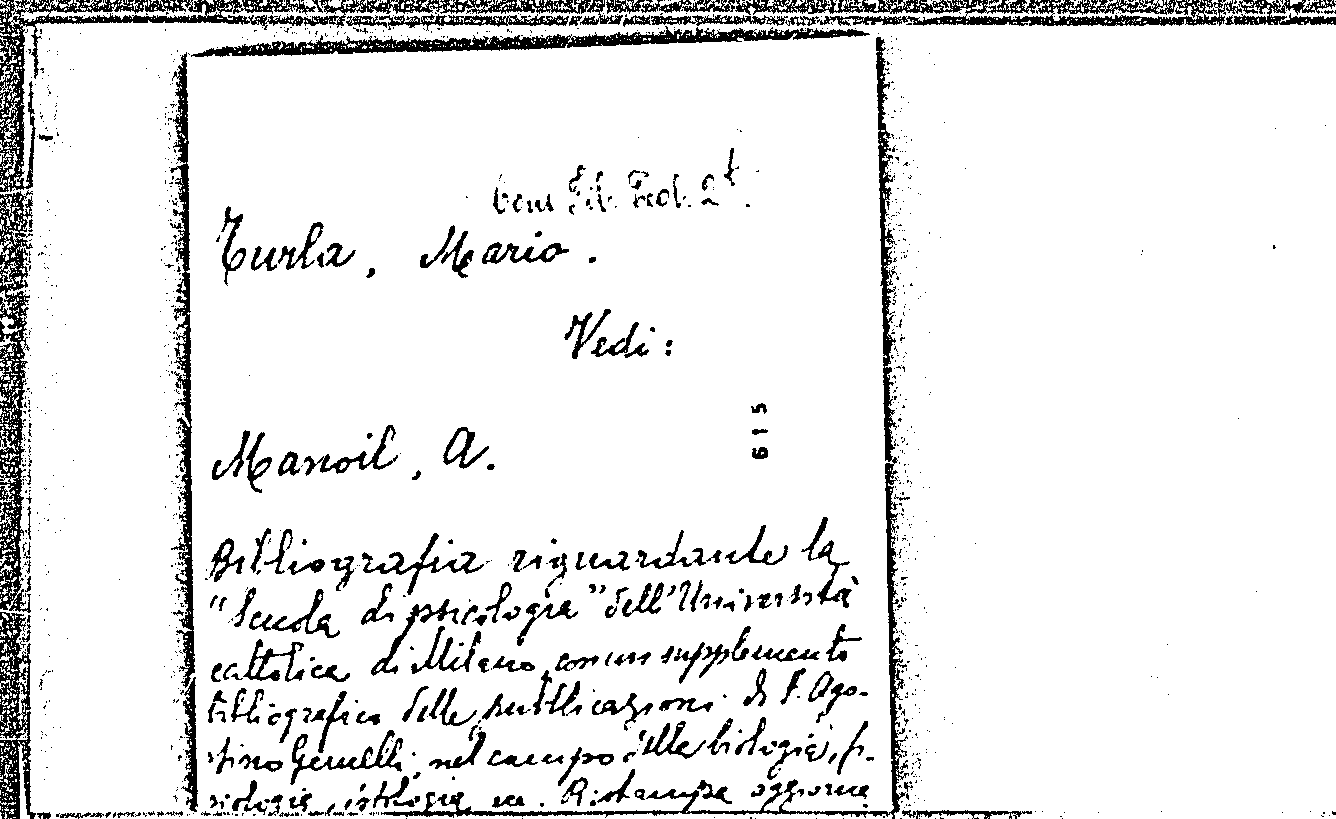 Turla, Mario.
Vedi:
615
Manoil, A.
Bibliografia riguardante la
"Scuola di psicologia" dell'Università
cattolica di Milano, con un supplemento
bibliografico delle pubblicazioni di F. Ago-
stino Gemelli, nel campo della biologia, fi-
siologia, istologia, ecc. Ristampa aggiorna